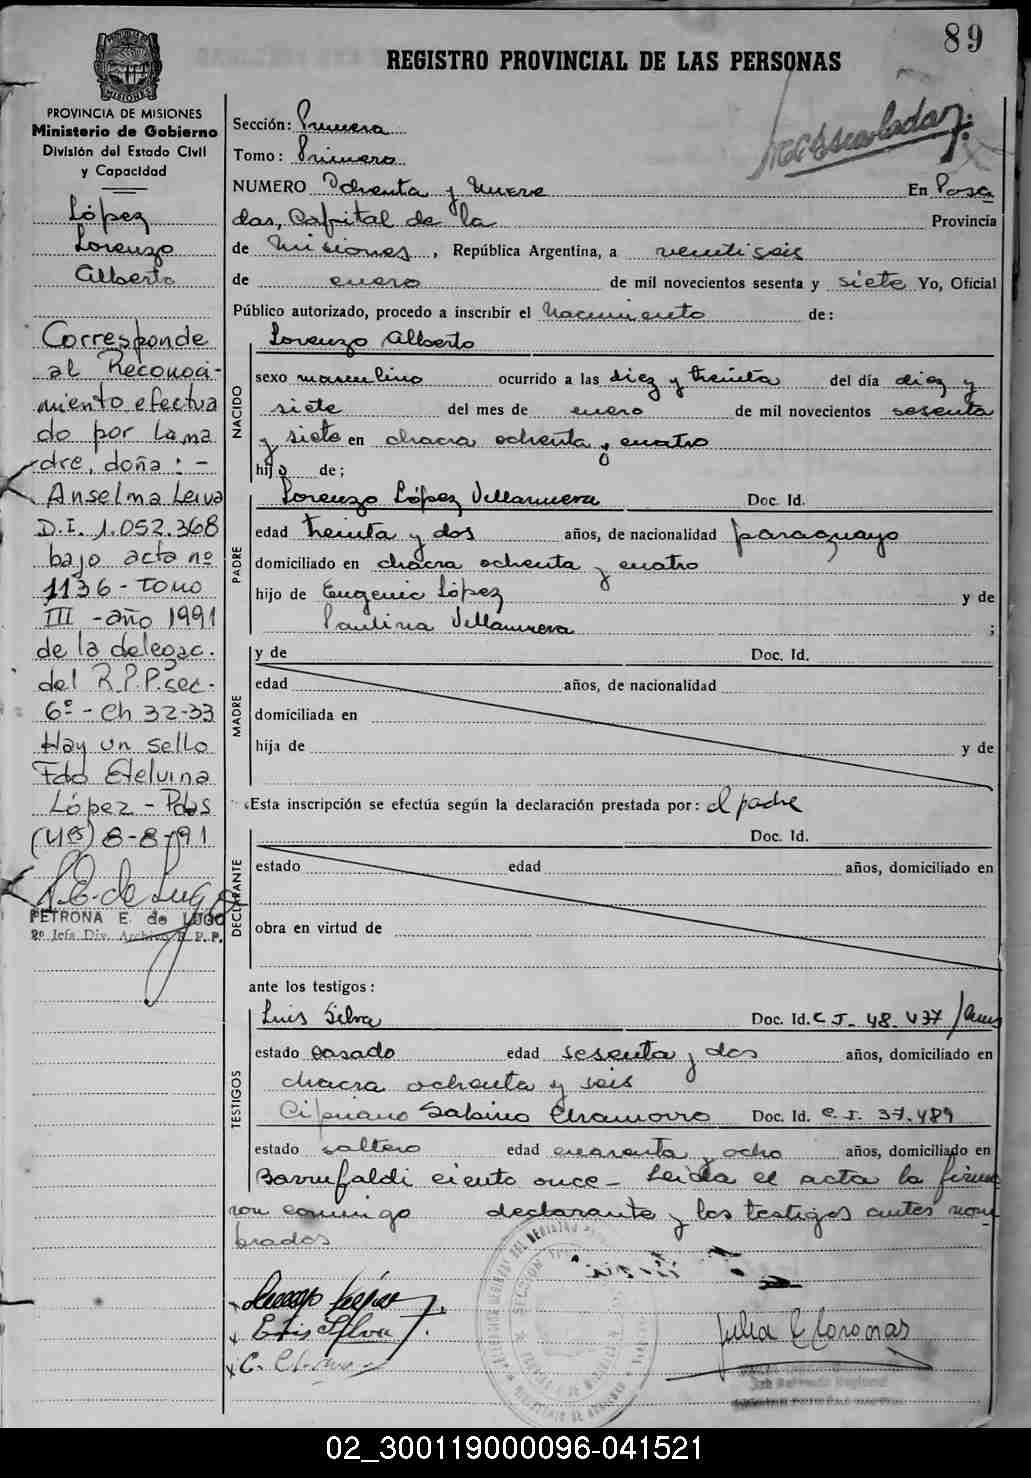 89
REGISTRO PROVINCIAL DE LAS PERSONAS
MISIONES
PROVINCIA DE MISIONES
Ministerio de Gobierno
División del Estado Civil
y Capacidad
López
Lorenzo
Alberto
Corresponde
al Reconoci-
miento efectua
do por la ma
dre, doña: -
Anselma Leiva
D.I. 1.052.368
bajo acta nº
1136 - Tomo
III - año 1991
de la delegac.
del R.P.P. sec.
6º - Ch 32-33
Hay un sello
Fdo Etelvina
López - Pdas
8-8-91
PETRONA E. de LUGO
2º Jefa Div. Archivo R. P. P.
Sección: Primera
Tomo: Primero
NUMERO Ochenta y Nueve En Posa
das, Capital de la Provincia
de Misiones, República Argentina, a veintiseis
de enero de mil novecientos sesenta y siete Yo, Oficial
Público autorizado, procedo a inscribir el Nacimiento de:
NACIDO
Lorenzo Alberto
sexo masculino ocurrido a las diez y treinta del día diez y
siete del mes de enero de mil novecientos sesenta
y siete en chacra ochenta y cuatro
hijo de;
PADRE
Lorenzo López Villanueva Doc. Id.
edad treinta y dos años, de nacionalidad paraguayo
domiciliado en chacra ochenta y cuatro
hijo de Eugenio López y de
Paulina Villanueva ;
MADRE
y de Doc. Id.
edad años, de nacionalidad
domiciliada en
hija de y de
Esta inscripción se efectúa según la declaración prestada por: el padre
DECLARANTE
Doc. Id.
estado edad años, domiciliado en
obra en virtud de
ante los testigos:
TESTIGOS
Luis Silva Doc. Id. C.I. 48.437
estado casado edad sesenta y dos años, domiciliado en
chacra ochenta y seis
Cipriano Sabino Chamorro Doc. Id. C.I. 37.489
estado soltero edad cuarenta y ocho años, domiciliado en
Barrufaldi ciento once - Leida el acta la firma
ron conmigo declarante y los testigos antes nom
brados
Luis Silva
Julia
02_300119000096-041521